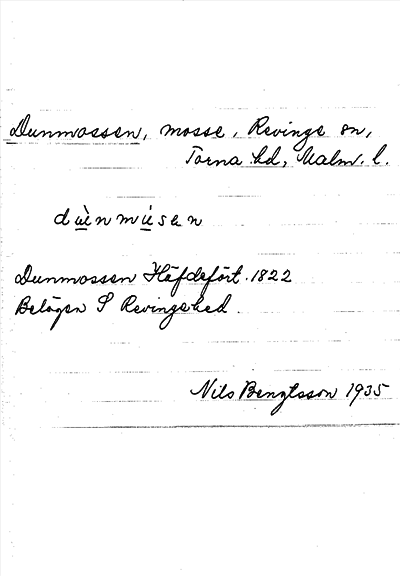 Dunmossen, mosse, Revinge sn,
Torna hd, Malm. l.
dùenmúsen
Dunmossen Häfdefört. 1822
Belägen S Revingehed.
Nils Bengtsson 1935